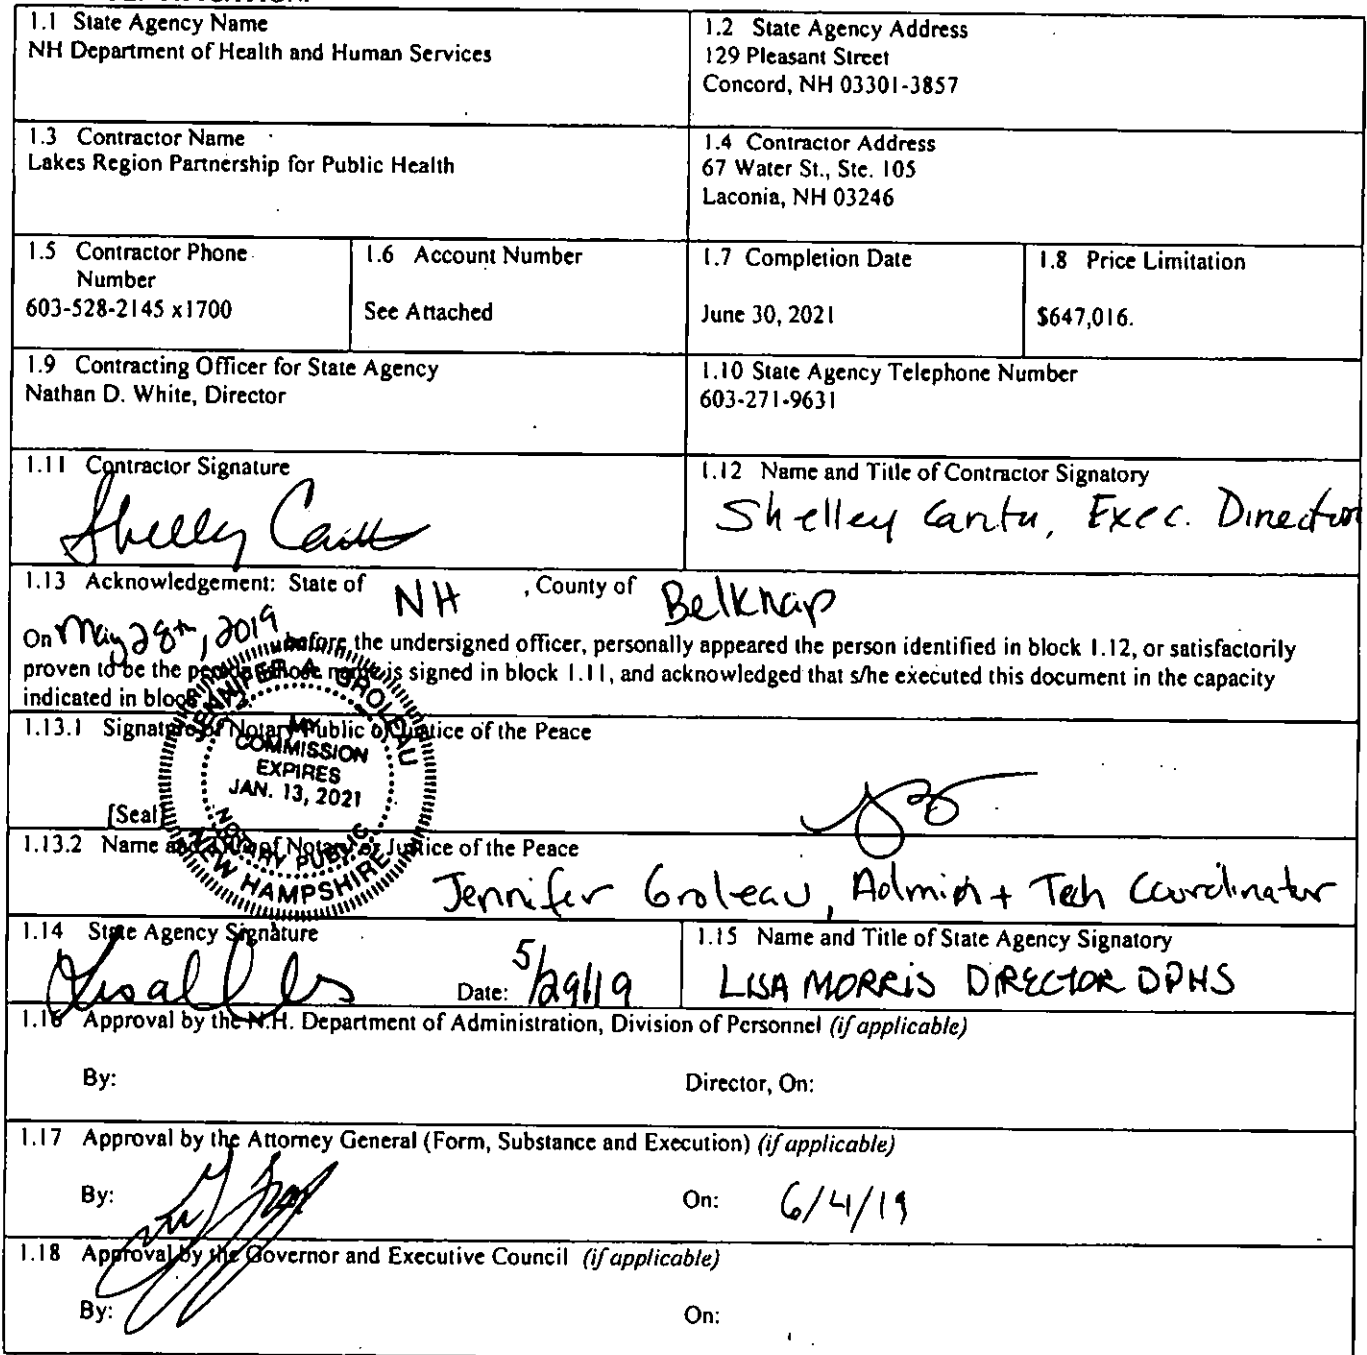 1.1 State Agency Name
NH Department of Health and Human Services
1.2 State Agency Address
129 Pleasant Street
Concord, NH 03301-3857
1.3 Contractor Name
Lakes Region Partnership for Public Health
1.4 Contractor Address
67 Water St., Ste. 105
Laconia, NH 03246
1.5 Contractor Phone
Number
603-528-2145 x1700
1.6 Account Number
See Attached
1.7 Completion Date
June 30, 2021
1.8 Price Limitation
$647,016.
1.9 Contracting Officer for State Agency
Nathan D. White, Director
1.10 State Agency Telephone Number
603-271-9631
1.11 Contractor Signature
1.12 Name and Title of Contractor Signatory
Shelley Cantu, Exec. Director
1.13 Acknowledgement: State of NH , County of Belknap
On May 28th, 2019 before the undersigned officer, personally appeared the person identified in block 1.12, or satisfactorily
proven to be the person whose name is signed in block 1.11, and acknowledged that s/he executed this document in the capacity
indicated in block
1.13.1 Signature of Notary Public or Justice of the Peace
JENNIFER A GROLEAU
MY
COMMISSION
EXPIRES
JAN. 13, 2021
NOTARY PUBLIC
NEW HAMPSHIRE
[Seal]
1.13.2 Name and Title of Notary or Justice of the Peace
Jennifer Groleau, Admin + Tech Coordinator
1.14 State Agency Signature
Date: 5/29/19
1.15 Name and Title of State Agency Signatory
LISA MORRIS DIRECTOR DPHS
1.16 Approval by the N.H. Department of Administration, Division of Personnel (if applicable)
By:
Director, On:
1.17 Approval by the Attorney General (Form, Substance and Execution) (if applicable)
By:
On: 6/4/19
1.18 Approval by the Governor and Executive Council (if applicable)
By:
On: